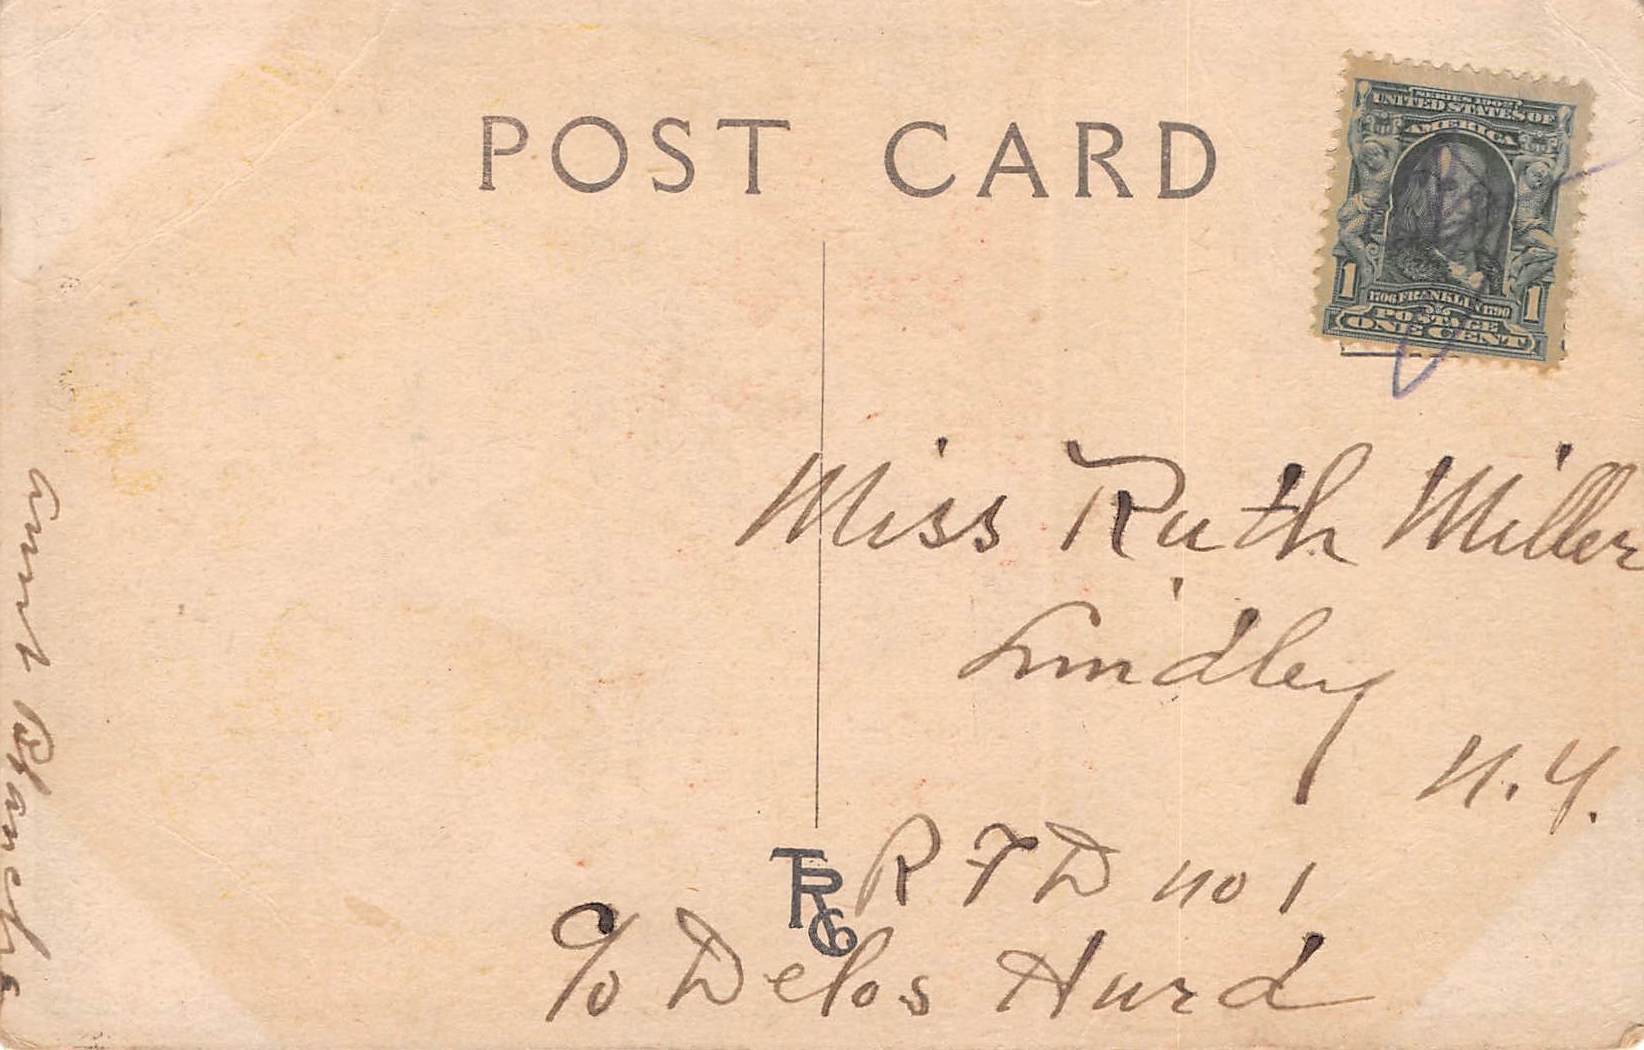 POST CARD
SERIES 1902
UNITED STATES OF
AMERICA
1 1
1706 FRANKLIN 1790
POSTAGE
ONE CENT
Miss Ruth Miller
Lindley
N.Y.
R F D no 1
TRCo
c/o Delos Hurd
aunt Blanche